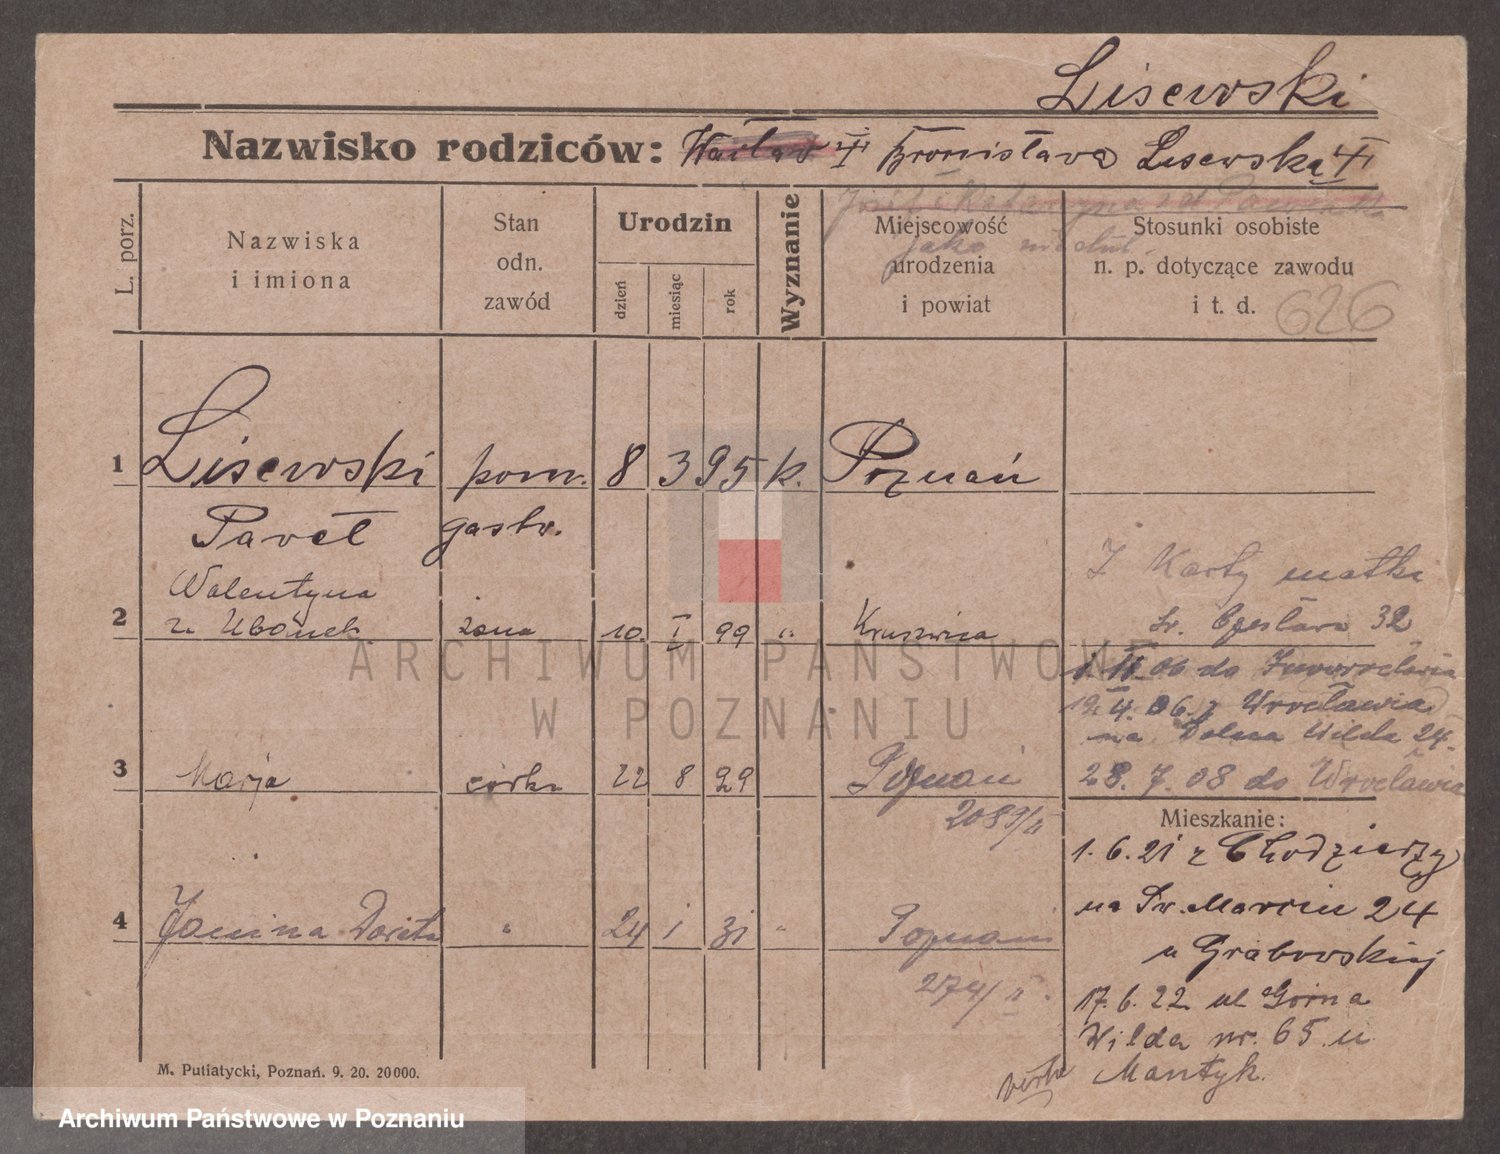 Lisewski
Nazwisko rodziców: Wacław Bronisława Lisewska
Józef i Katarzyna zd
jako
L. porz.
Nazwiska
i imiona
Stan
odn.
zawód
Urodzin
dzień
miesiąc
rok
Wyznanie
Miejscowość
urodzenia
i powiat
Stosunki osobiste
n. p. dotyczące zawodu
i t. d.
626
1 Lisewski pom. 8 3 95 k. Poznań
Paweł gastr.
Walentyna
2 z. żona 10. I 99 " Kruszwica
Z Karty matki
św. Czesława 32
1. II 06 do Inowrocławia
19. 4. 06. z Wrocławia
na Dolna Wilda 24.
3 Marja córka 22 8 29 Poznań
28. 7. 08 do Wrocławia
2089/II
Mieszkanie:
1. 6. 21 z Chodzieży
na Św. Marcin 24
u Grabowskiej
4 Janina Dorota " 24 1 31 " Poznań
274/II.
17. 6. 22 ul Górna
Wilda nr. 65 u
Mantyk.
verte
M. Putiatycki, Poznań. 9. 20. 20000.
ARCHIWUM PAŃSTWOWE
W POZNANIU
Archiwum Państwowe w Poznaniu